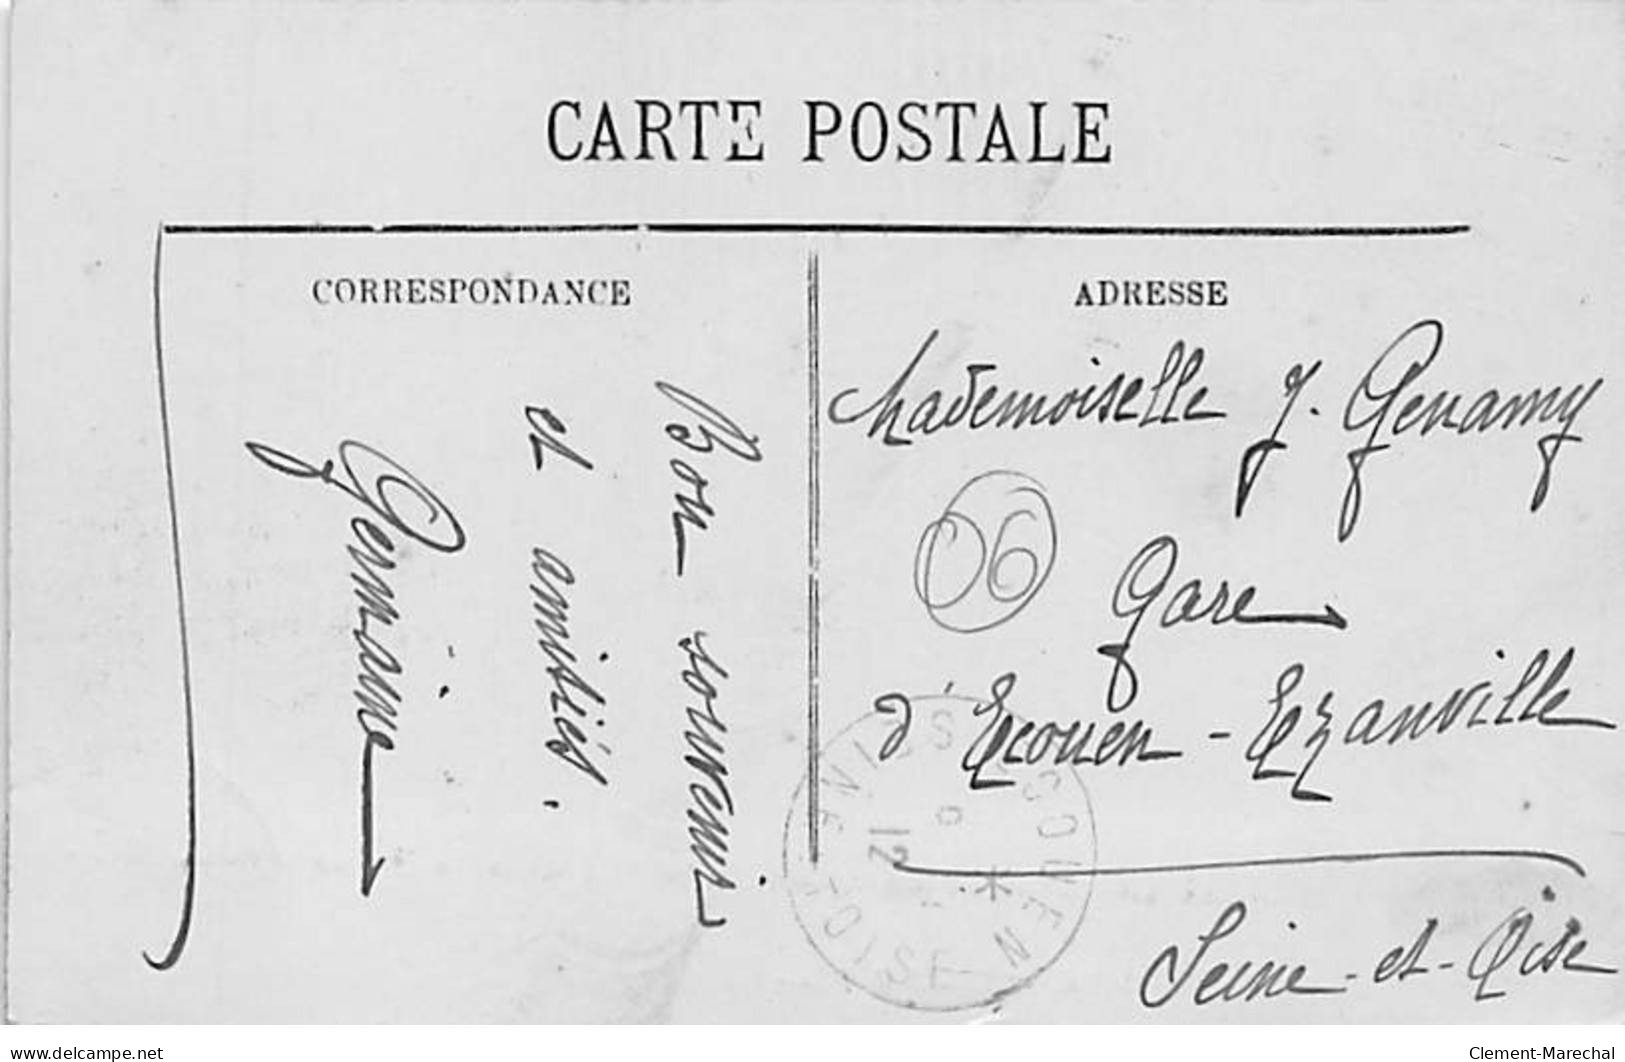 CARTE POSTALE
CORRESPONDANCE
Bon souvenir
et amitiés.
Germaine
ADRESSE
Mademoiselle J. Genamy
06
Gare
d'Ecouen-Ezanville
Seine-et-Oise
ECOUEN
SEINE-ET-OISE
12
delcampe.net
Clement-Marechal